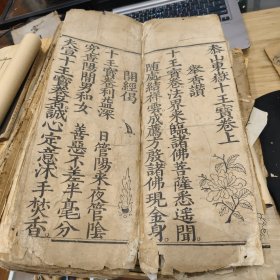 泰山東嶽十王寶卷上
舉香讚
十王寶卷法界來臨諸佛菩薩悉遙聞
隨處結祥雲誠意方殷諸佛現金身
開經偈
十王寶卷利益深
日管陽來夜管陰
勸喻陽間男和女
善惡不差半毫分
大宣十王寶卷者誠心定意沐手焚香